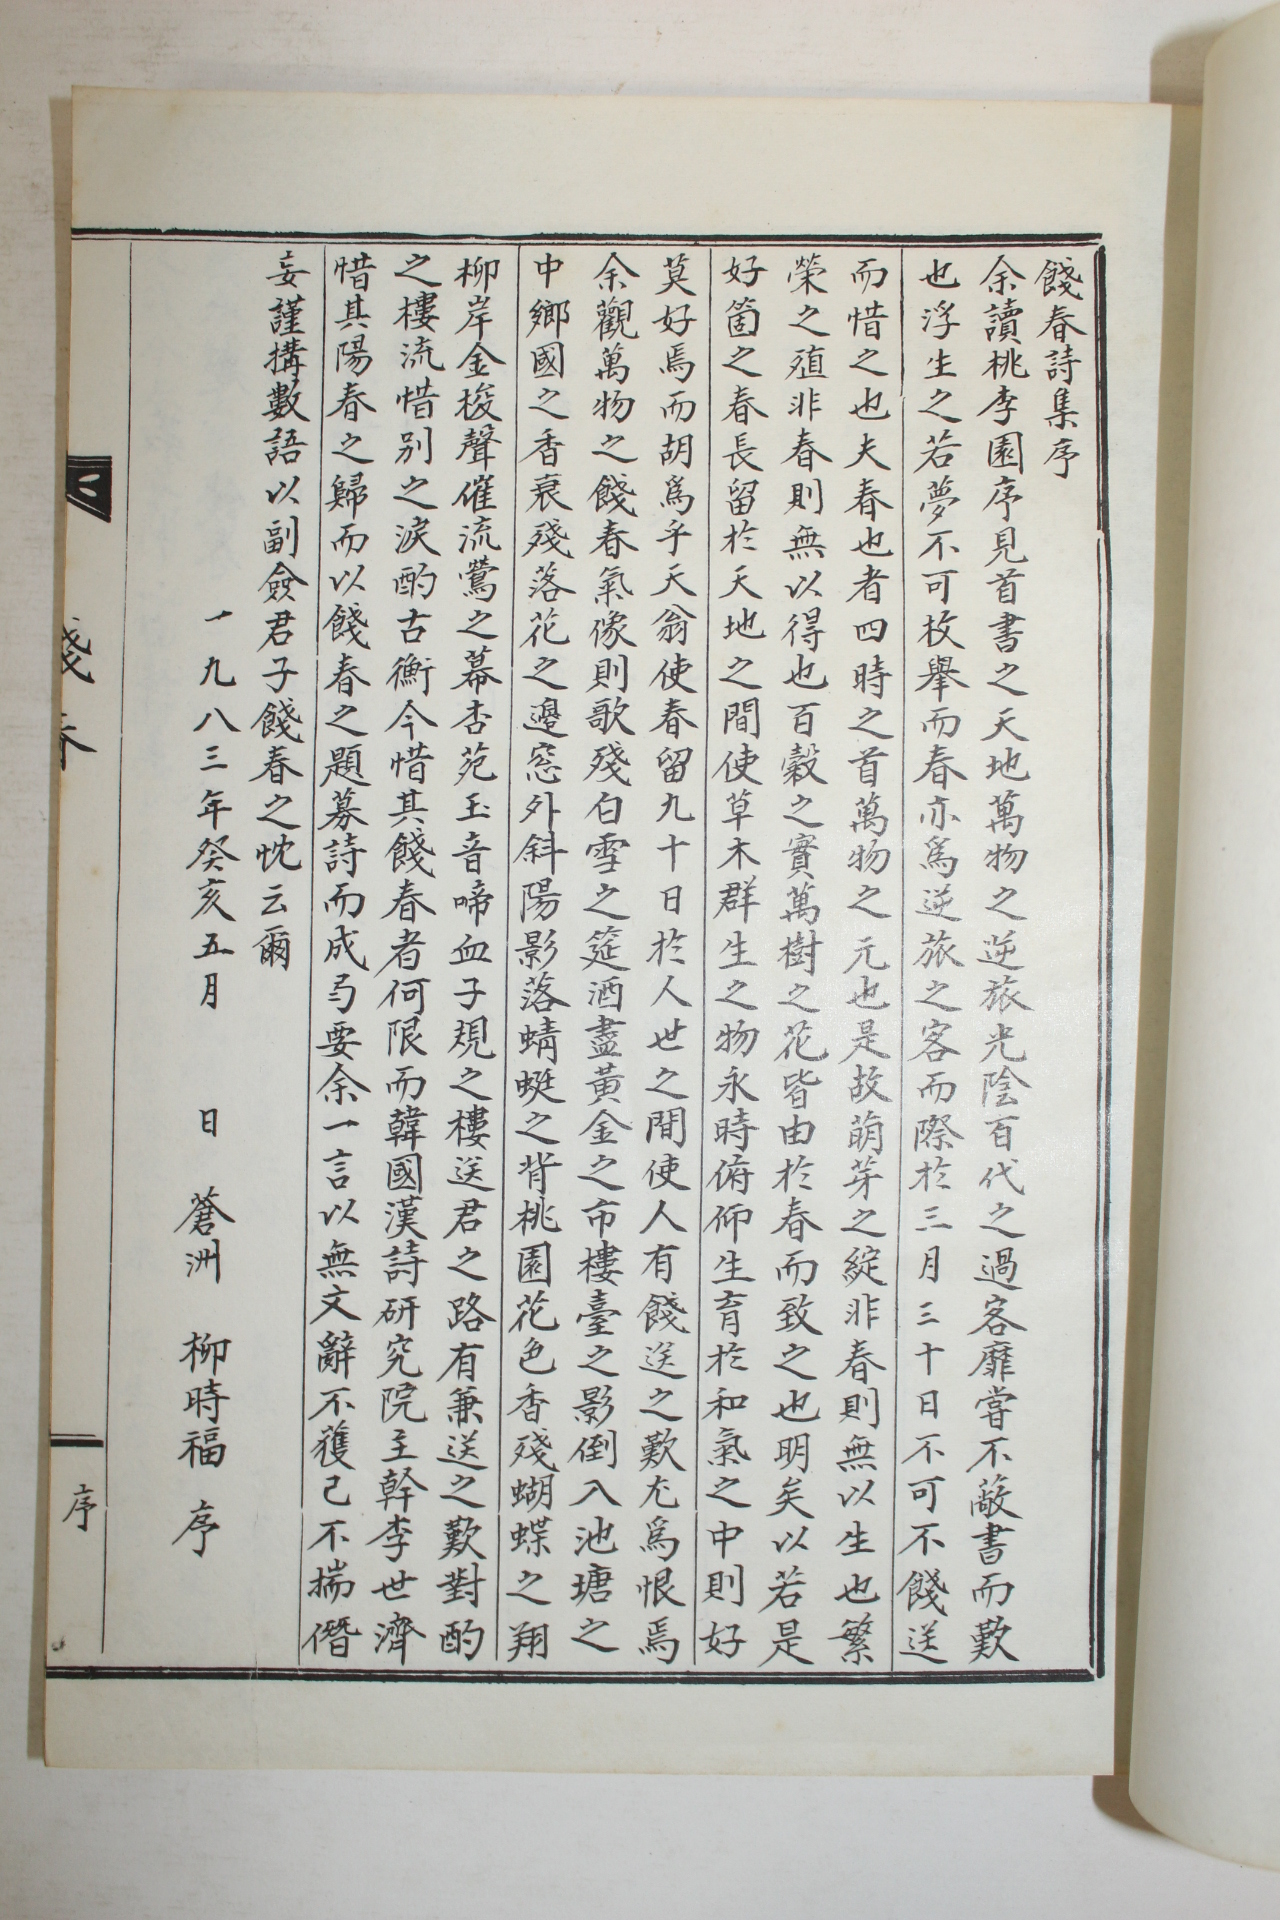 餞春詩集序
余讀桃李園序見首書之天地萬物之逆旅光陰百代之過客靡嘗不蔽書而歎
也浮生之若夢不可枚擧而春亦爲逆旅之客而際於三月三十日不可不餞送
而惜之也夫春也者四時之首萬物之元也是故萌芽之綻非春則無以生也繁
榮之殖非春則無以得也百穀之實萬樹之花皆由於春而致之也明矣以若是
好箇之春長留於天地之間使草木群生之物永時俯仰生育於和氣之中則好
莫好焉而胡爲乎天翁使春留九十日於人世之間使人有餞送之歎尤爲恨焉
余觀萬物之餞春氣像則歌殘白雪之筵酒盡黃金之市樓臺之影倒入池塘之
中鄕國之香衰殘落花之邊窓外斜陽影落蜻蜓之背桃園花色香殘蝴蝶之翔
柳岸金梭聲催流鶯之幕杏苑玉音啼血子規之樓送君之路有兼送之歎對酌
之樓流惜別之淚酌古衡今惜其餞春者何限而韓國漢詩硏究院主幹李世濟
惜其陽春之歸而以餞春之題募詩而成弓要余一言以無文辭不獲己不揣僭
妄謹搆數語以副僉君子餞春之忱云爾
一九八三年癸亥五月 日 蒼洲 柳時福 序
餞春
序